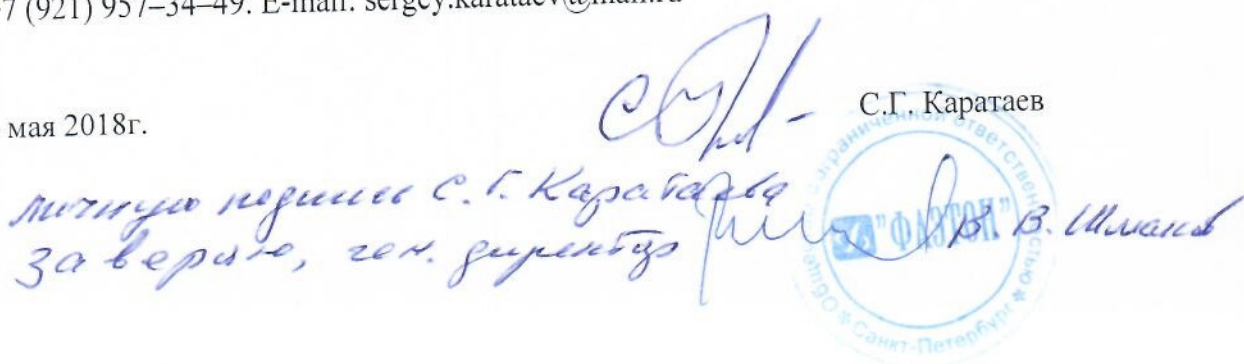 7 (921) 957–34–49. E-mail: sergey.karataev@mail.ru
мая 2018г.
С.Г. Каратаев
личную подпись С. Г. Каратаева
заверяю, ген. директор
В. В. Шманёв
Общество с ограниченной ответственностью
"ФАЭТОН"
* Санкт-Петербург *